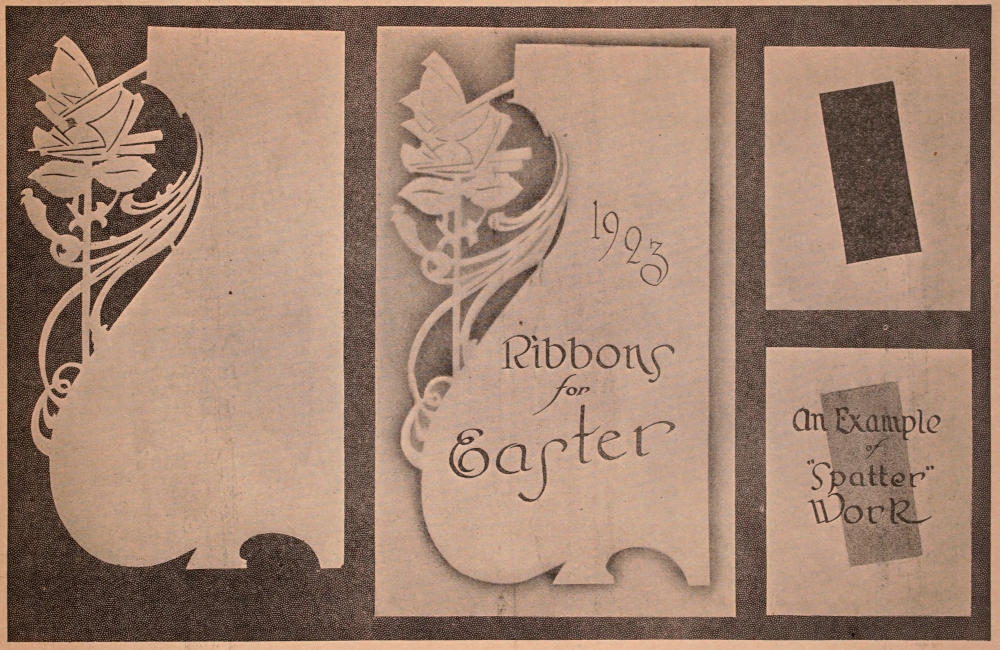 1923
Ribbons
for
Easter
An Example
of
"Spatter"
Work